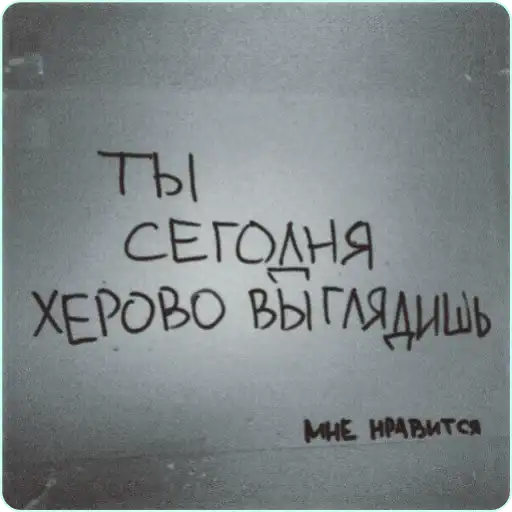 ТЫ
СЕГОДНЯ
ХЕРОВО ВЫГЛЯДИШЬ
МНЕ НРАВИТСЯ